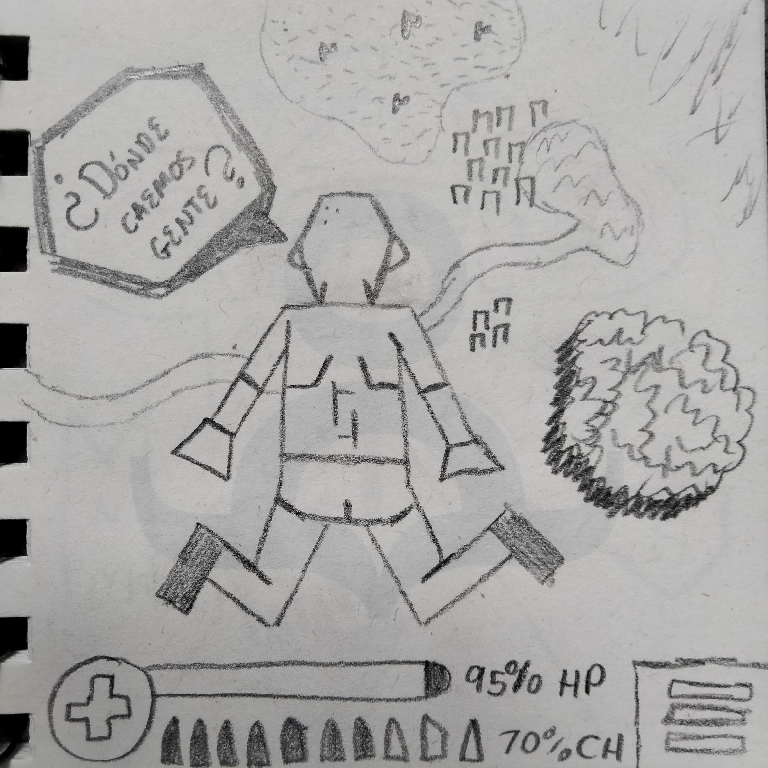 ¿DÓNDE
CAEMOS
GENTE?
95% HP
70% CH